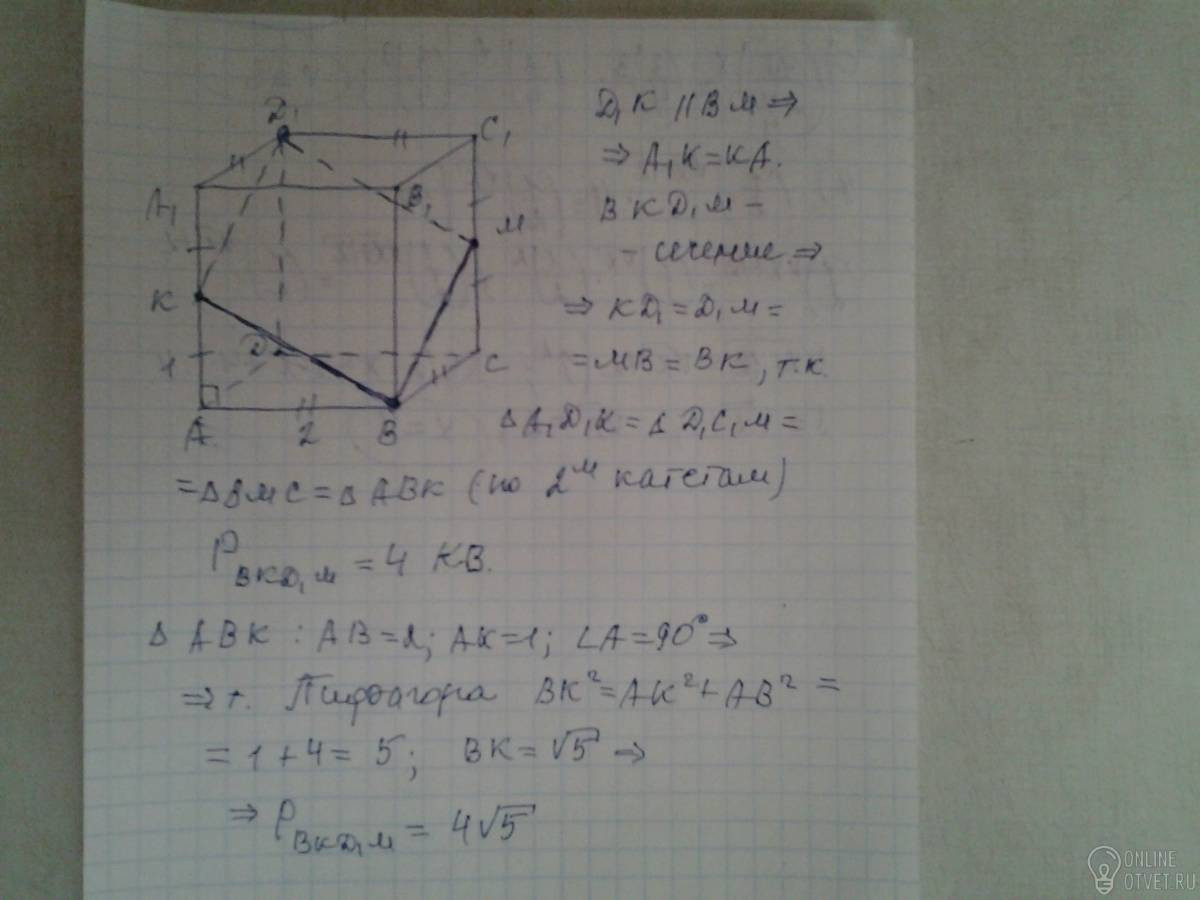 D₁
C₁
A₁
B₁
M
K
D
1
C
A
2
B
D₁K || BM ⇒
⇒ A₁K = KA.
BKD₁M –
– сечение ⇒
⇒ KD₁ = D₁M =
= MB = BK, т.к.
Δ A₁D₁K = Δ D₁C₁M =
= Δ BMC = Δ ABK (по 2ᵐ катетам)
P_BKD₁M = 4 KB.
Δ ABK : AB = 2; AK = 1; ∠A = 90° ⇒
⇒ т. Пифагора BK² = AK² + AB² =
= 1 + 4 = 5; BK = √5 ⇒
⇒ P_BKD₁M = 4√5
ONLINE
OTVET.RU